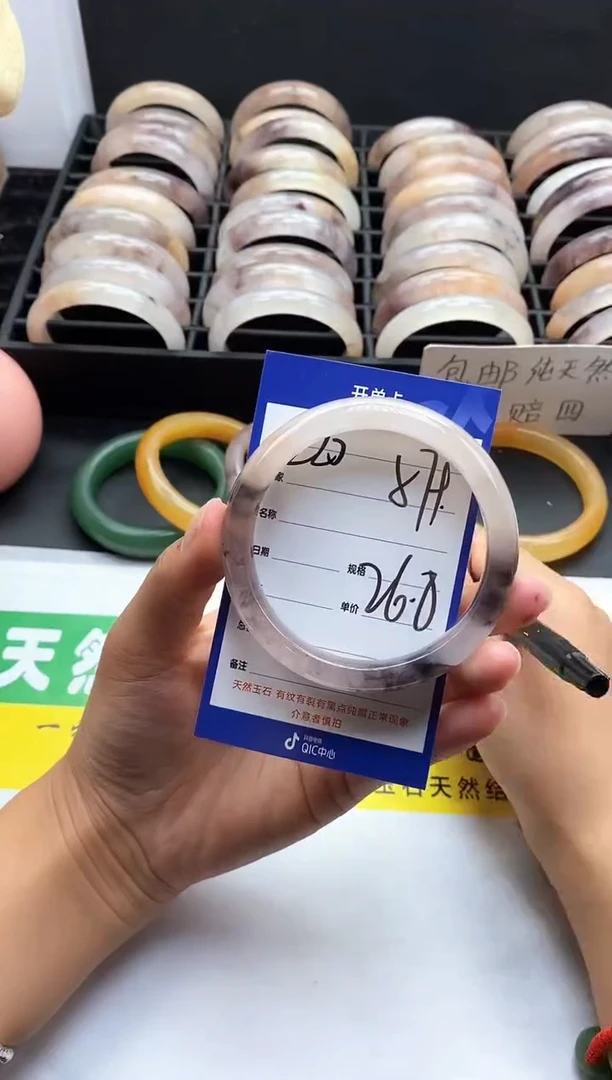 包邮纯天然
赔四
开单卡
家
名称
日期
规格
单价 26.8
备注
天然玉石 有纹有裂有黑点纯属正常现象
介意者慎拍
抖音电商
QIC中心
天然
玉石天然结